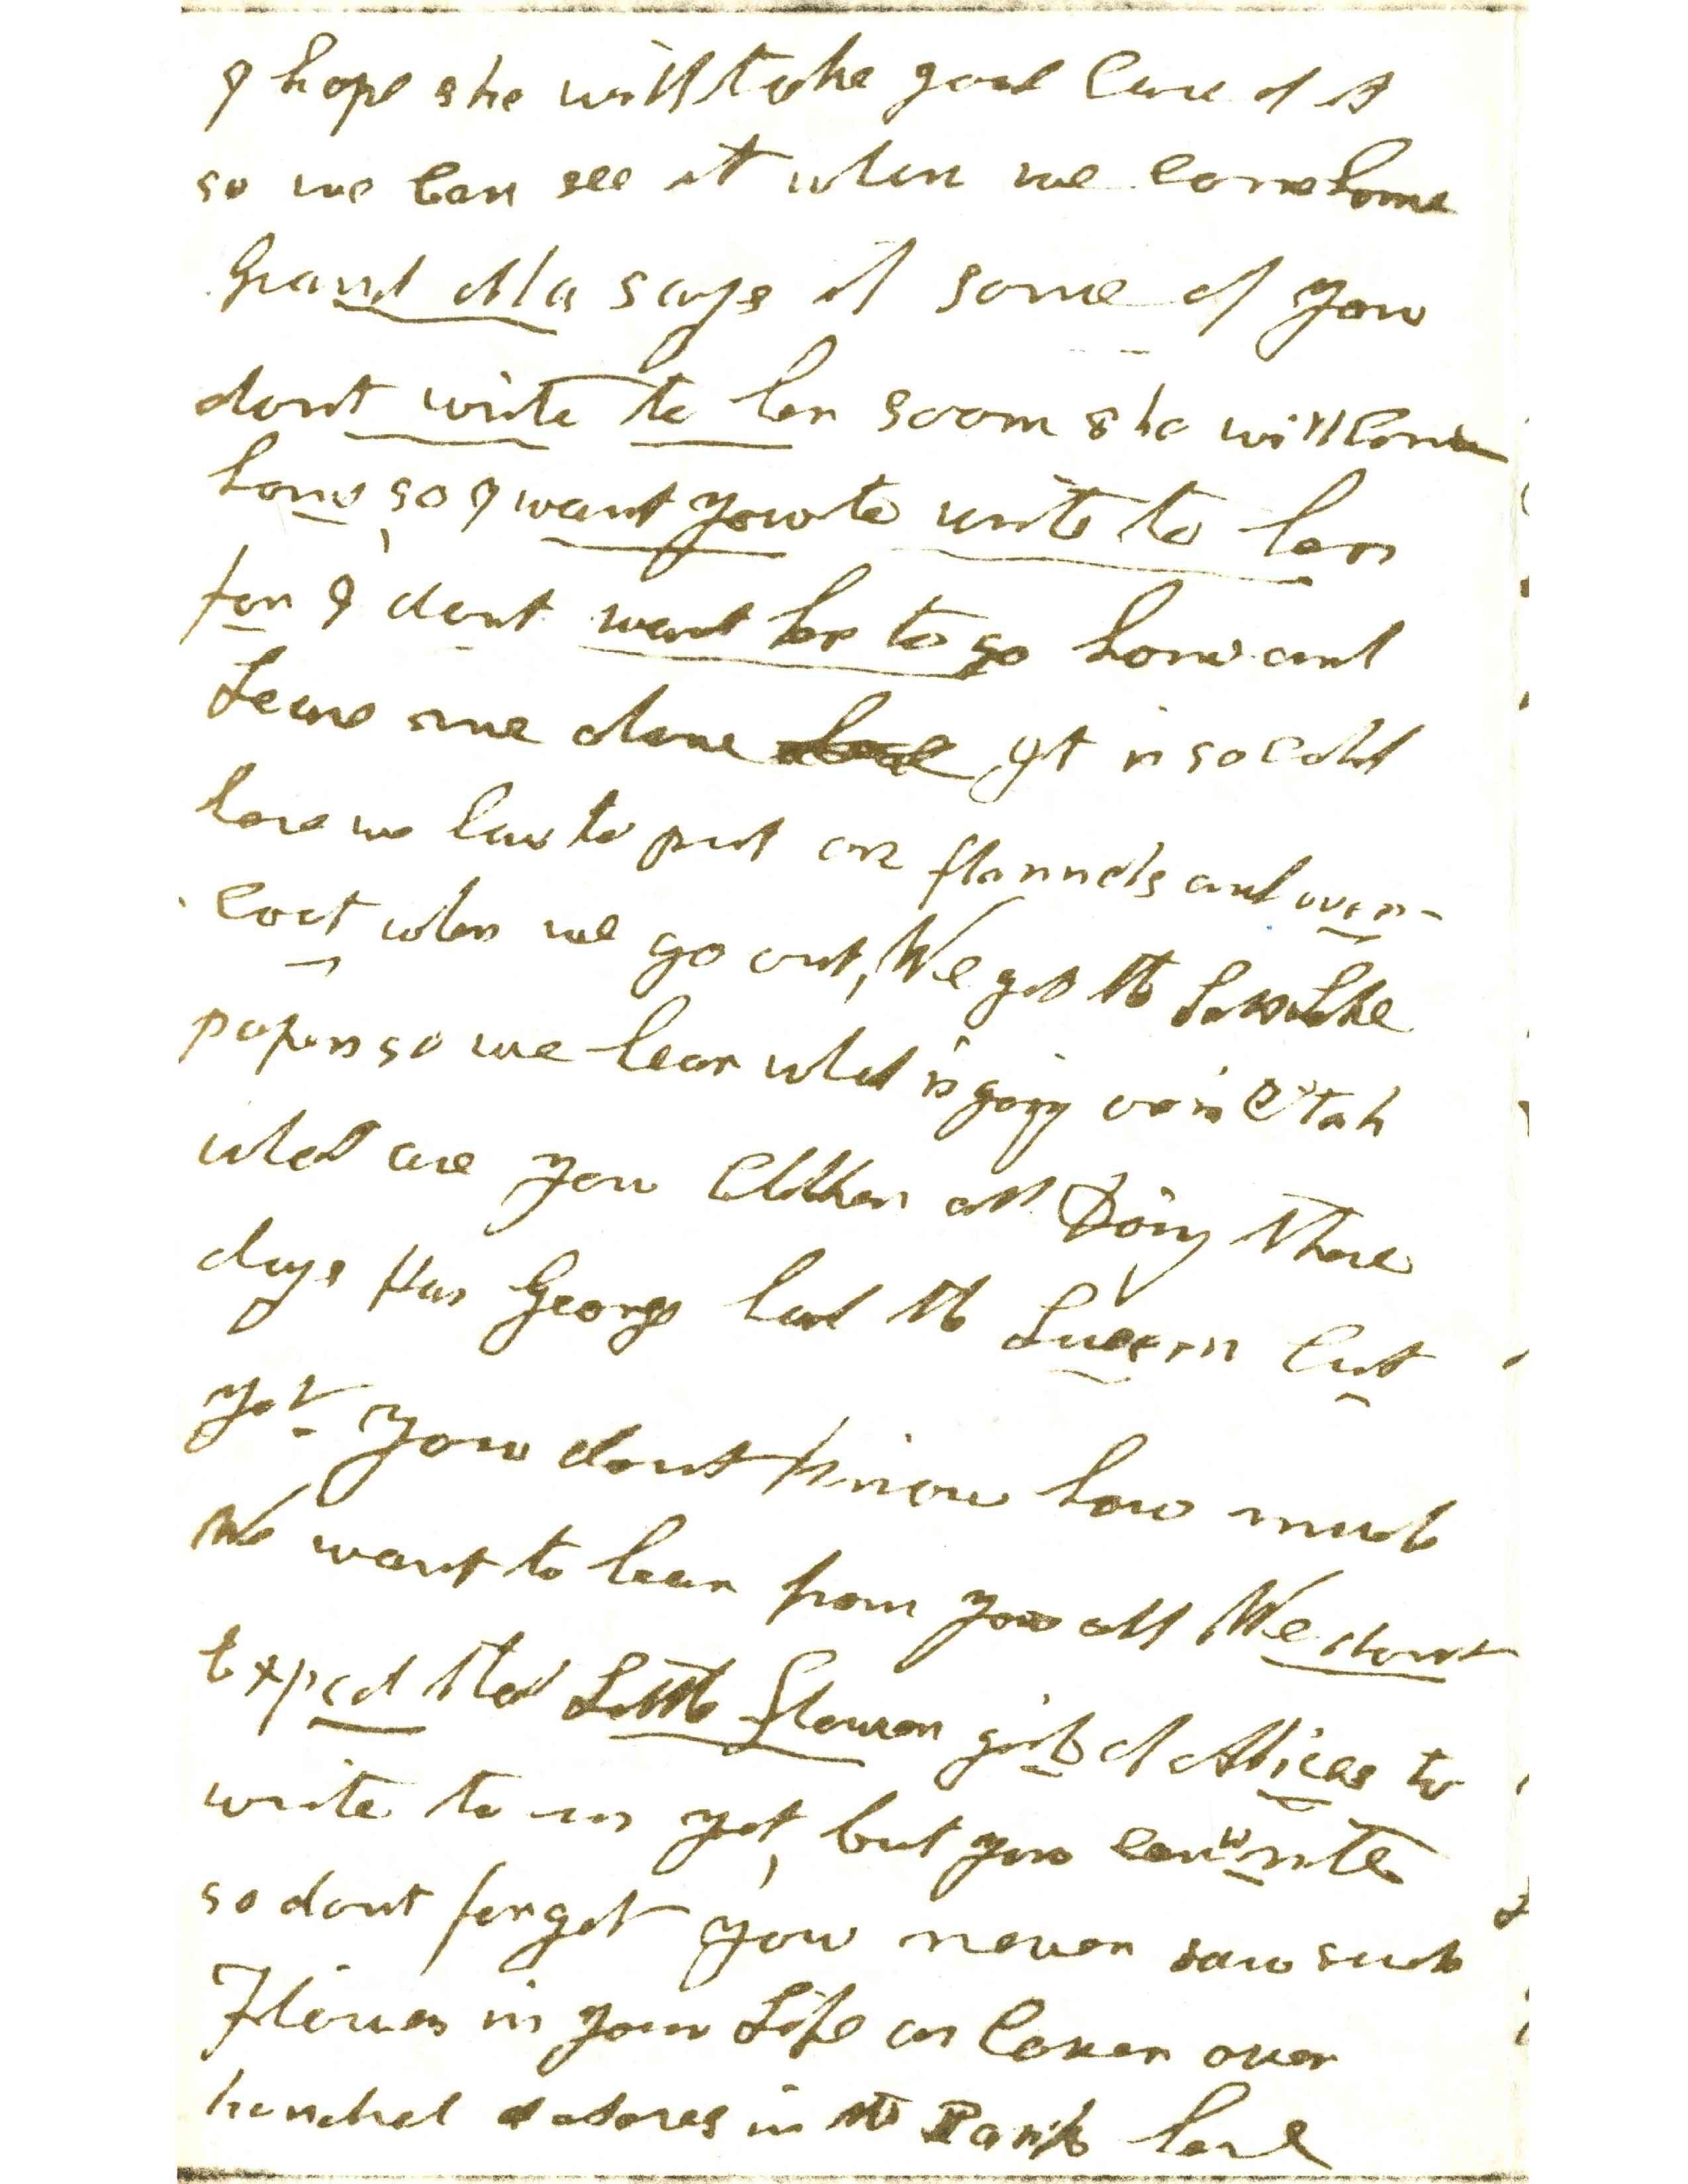 I hope she will take good Care of it
so we Can see it when we come home
Grand Ma says if some of you
dont write to her soon she will Come
home, so I want you to write to her
for I dont want her to go home and
Leave me alone It is so cold
here we have to put on flannels and over-
Coat when we go out, We get the Salt Lake
papers so we hear what is going on in Utah
what are you Children all Doing these
days Has George had the Lucern Cut
yet You dont know how much
We want to hear from you all We dont
Expect that Little flower girl of Alices to
write to us yet, but you can write
so dont forget you never saw such
Flowers in your Life as Cover over
hundred acores in the Park here